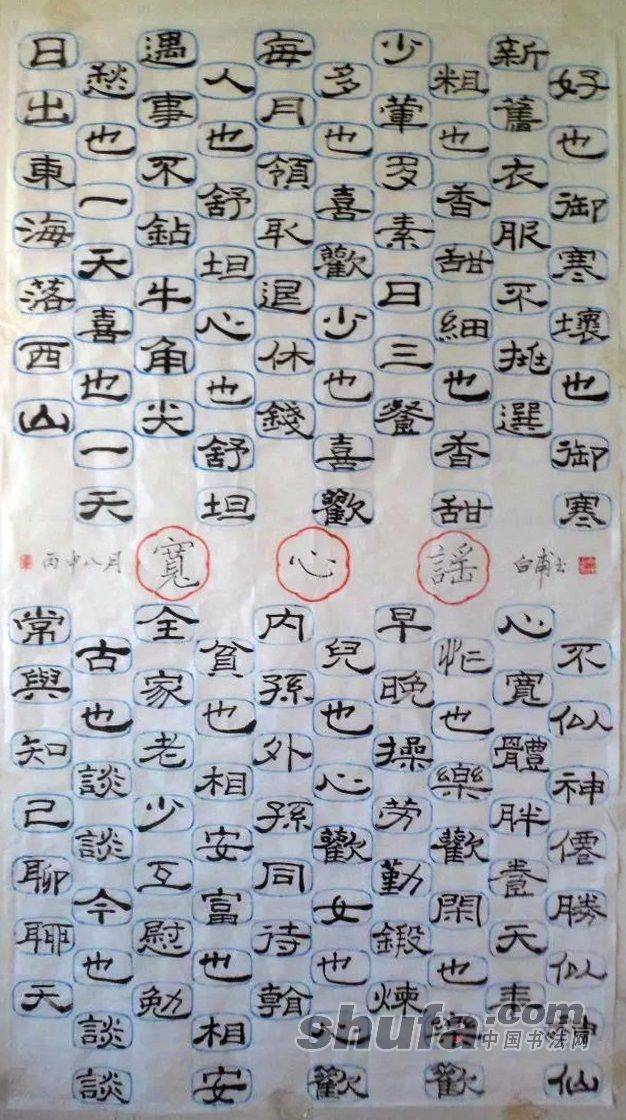 日出東海落西山
愁也一天喜也一天
遇事不鉆牛角尖
人也舒坦心也舒坦
每月領取退休錢
多也喜歡少也喜歡
少葷多素日三餐
粗也香甜細也香甜
新舊衣服不挑選
好也御寒壞也御寒
丙申八月
寬心謠
白甫書
常與知己聊聊天
古也談談今也談談
全家老少互慰勉
貧也相安富也相安
內孫外孫同待翰
兒也心歡女也心歡
早晚操劳勤鍛煉
忙也樂歡閑也樂歡
心寬體胖養天年
不似神僊勝似神仙
shufa.com
中国书法网